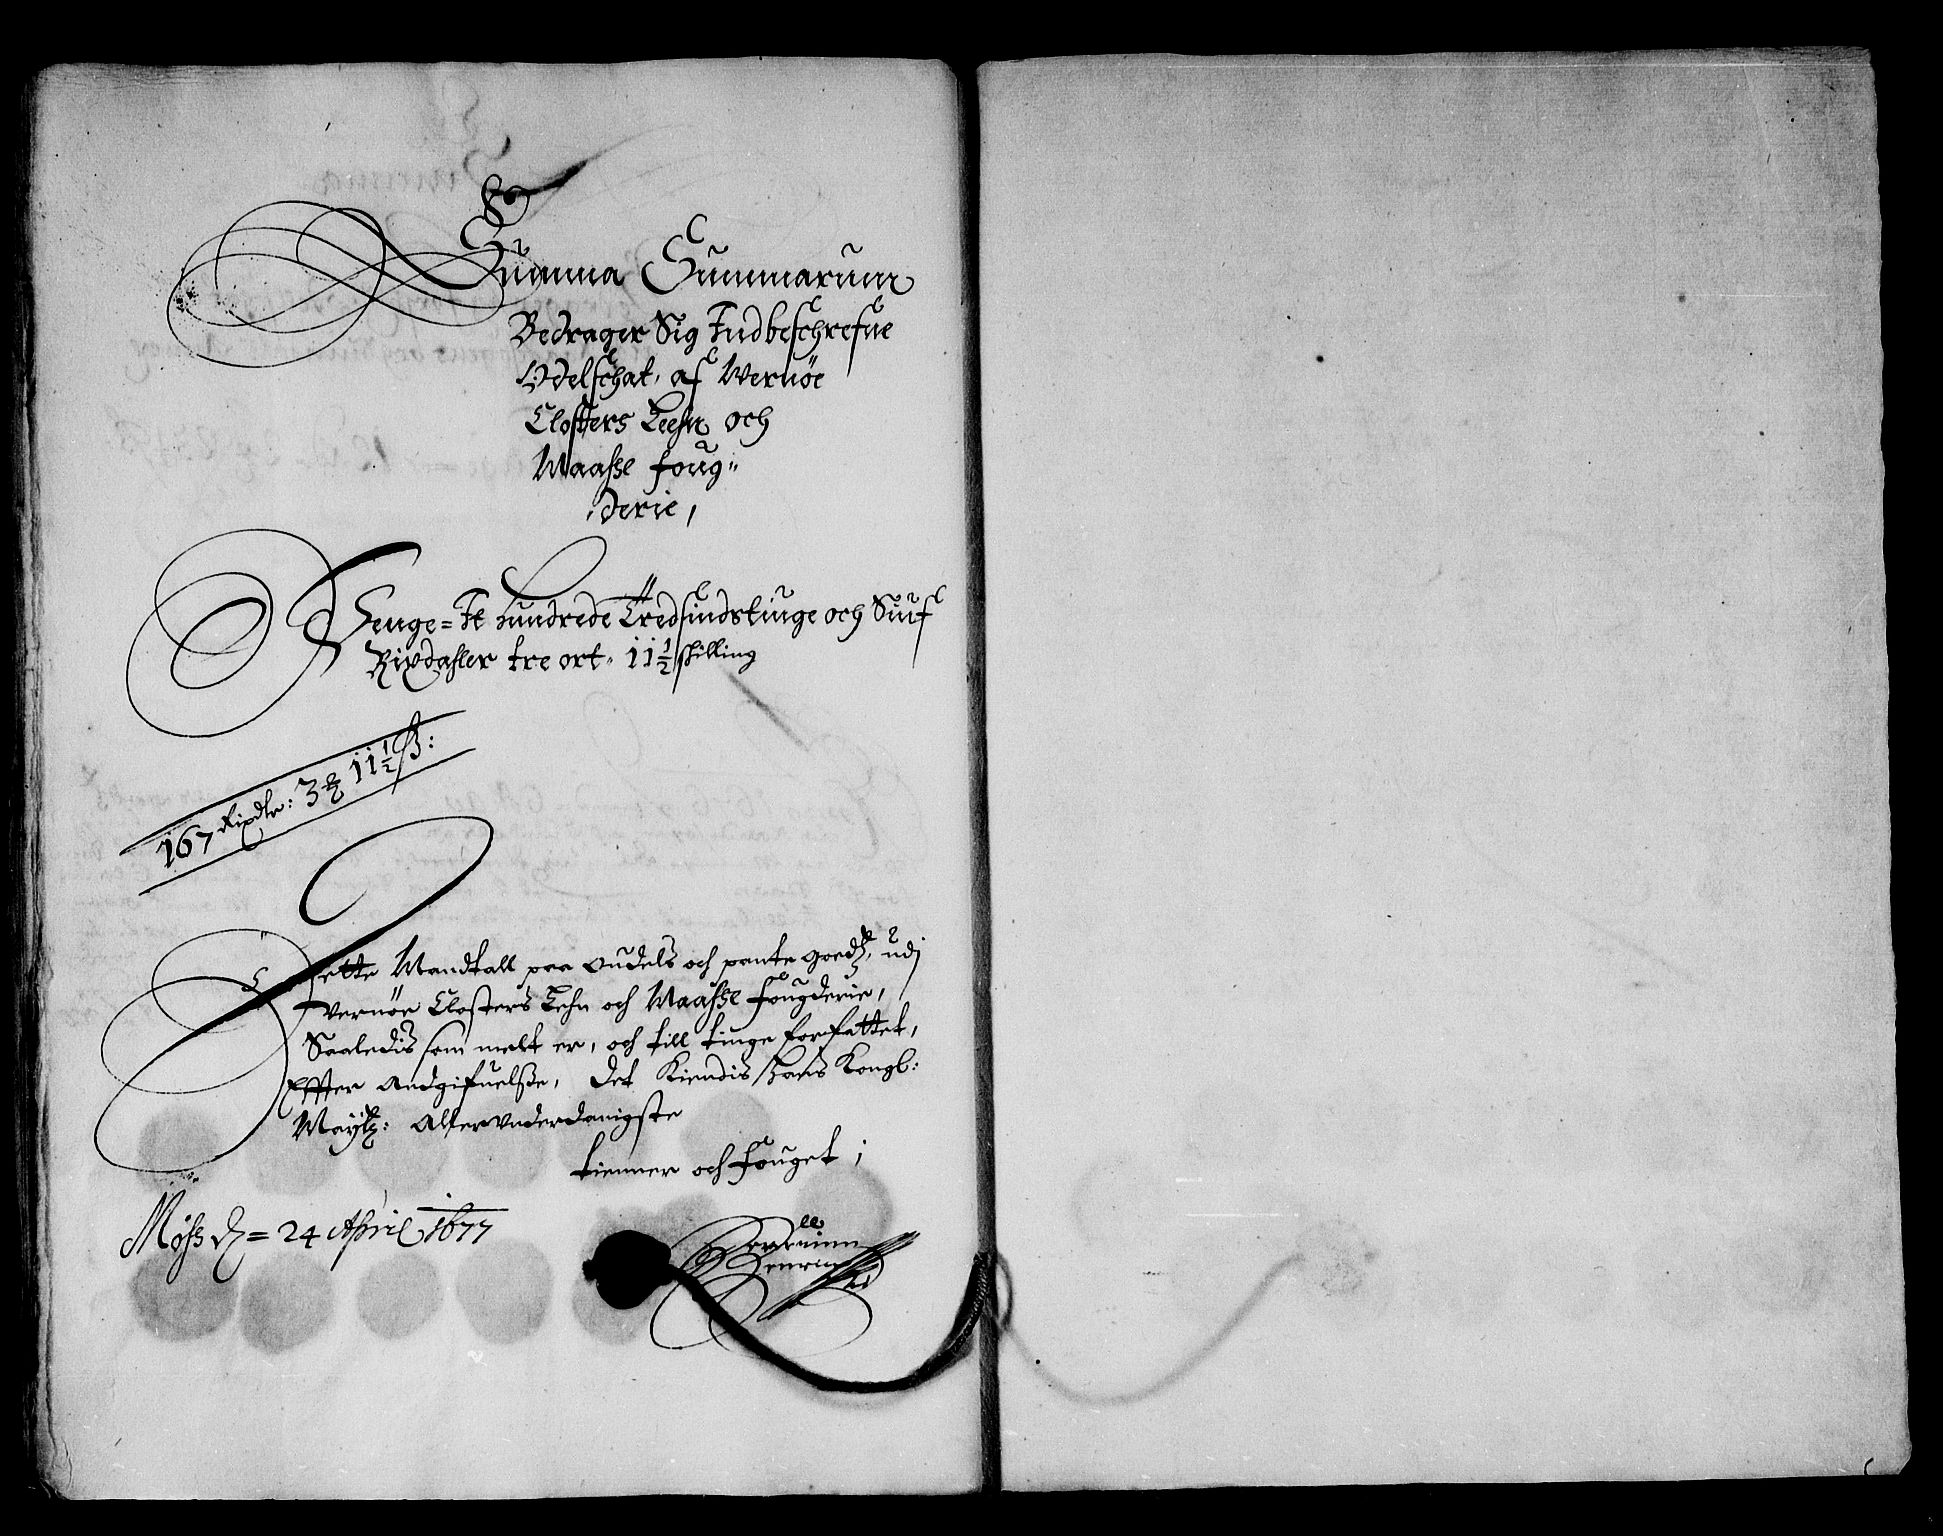 Summa Summarum
Bedrager Sig Indbeschrefne
Odelschat, af Wernöe
Closters Leehn och
Maasse foug„
derie,
Penge = It hundrede Tredsindstiuge och Siuf
Rixdahler tre ort. 11½ skilling
167 Rixdlr: 3 ort 11½ ß:
Dette Mandtall paa oudels och pante goedz, udj
Vernöe Closters Lehn och Maasse fougderie,
Saaledis som melt er, och till tinge forfattet,
Effter Andgifuelsse, det Kiendis Hans Kongl:
Maytz: Allerunderdanigste
tienner och Fouget;
Moss d = 24 April 1677